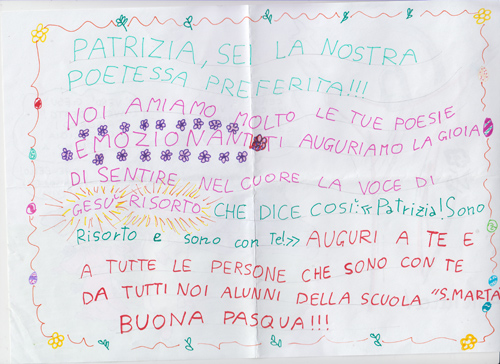 PATRIZIA, SEI LA NOSTRA
POETESSA PREFERITA!!!
NOI AMIAMO MOLTO LE TUE POESIE
EMOZIONANTI TI AUGURIAMO LA GIOIA
DI SENTIRE NEL CUORE LA VOCE DI
GESU' RISORTO CHE DICE COSI': «Patrizia! Sono
Risorto e sono con Te!» AUGURI A TE E
A TUTTE LE PERSONE CHE SONO CON TE
DA TUTTI NOI ALUNNI DELLA SCUOLA "S. MARTA
BUONA PASQUA!!!